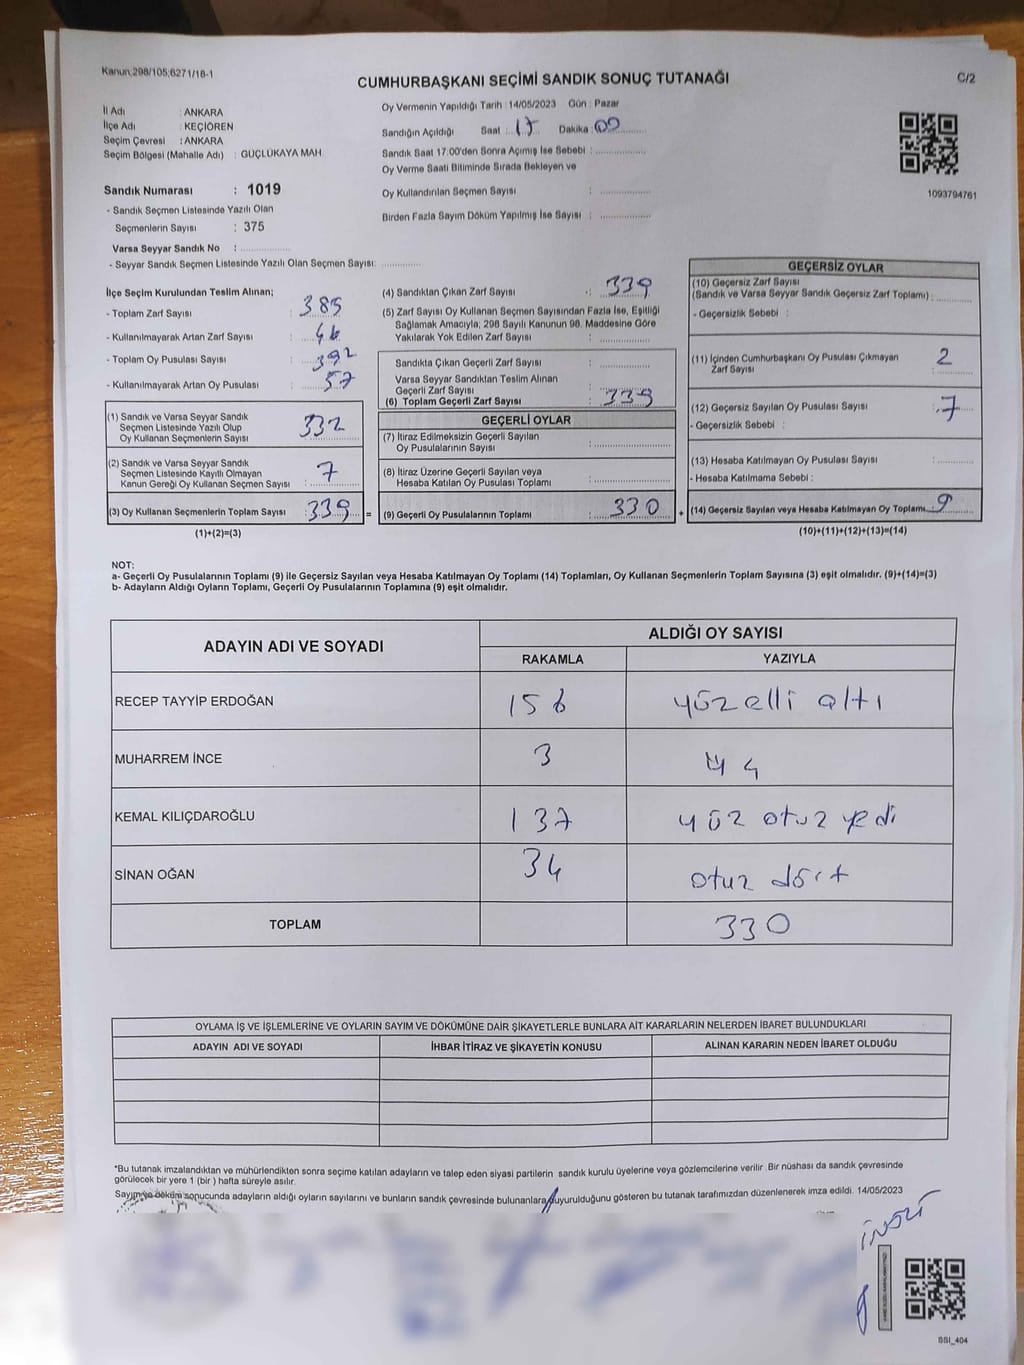 Kanun;298/105;6271/18-1
CUMHURBAŞKANI SEÇİMİ SANDIK SONUÇ TUTANAĞI
C/2
İl Adı : ANKARA
İlçe Adı : KEÇİÖREN
Seçim Çevresi : ANKARA
Seçim Bölgesi (Mahalle Adı) : GÜÇLÜKAYA MAH.
Sandık Numarası : 1019
- Sandık Seçmen Listesinde Yazılı Olan
Seçmenlerin Sayısı : 375
Varsa Seyyar Sandık No :
- Seyyar Sandık Seçmen Listesinde Yazılı Olan Seçmen Sayısı:
Oy Vermenin Yapıldığı Tarih : 14/05/2023 Gün : Pazar
Sandığın Açıldığı Saat : 17 Dakika : 00
Sandık Saat 17:00'den Sonra Açımış İse Sebebi :
Oy Verme Saati Bitiminde Sırada Bekleyen ve
Oy Kullandırılan Seçmen Sayısı :
Birden Fazla Sayım Döküm Yapılmış İse Sayısı :
1093794761
İlçe Seçim Kurulundan Teslim Alınan;
- Toplam Zarf Sayısı : 385
- Kullanılmayarak Artan Zarf Sayısı : 46
- Toplam Oy Pusulası Sayısı : 392
- Kullanılmayarak Artan Oy Pusulası : 57
(1) Sandık ve Varsa Seyyar Sandık
Seçmen Listesinde Yazılı Olup
Oy Kullanan Seçmenlerin Sayısı : 332
(2) Sandık ve Varsa Seyyar Sandık
Seçmen Listesinde Kayıtlı Olmayan
Kanun Gereği Oy Kullanan Seçmen Sayısı : 7
(3) Oy Kullanan Seçmenlerin Toplam Sayısı : 339 =
(1)+(2)=(3)
(4) Sandıktan Çıkan Zarf Sayısı : 339
(5) Zarf Sayısı Oy Kullanan Seçmen Sayısından Fazla İse, Eşitliği
Sağlamak Amacıyla; 298 Sayılı Kanunun 98. Maddesine Göre
Yakılarak Yok Edilen Zarf Sayısı :
Sandıkta Çıkan Geçerli Zarf Sayısı :
Varsa Seyyar Sandıktan Teslim Alınan
Geçerli Zarf Sayısı :
(6) Toplam Geçerli Zarf Sayısı : 339
GEÇERLİ OYLAR
(7) İtiraz Edilmeksizin Geçerli Sayılan
Oy Pusulalarının Sayısı :
(8) İtiraz Üzerine Geçerli Sayılan veya
Hesaba Katılan Oy Pusulası Toplamı :
(9) Geçerli Oy Pusulalarının Toplamı : 330 +
GEÇERSİZ OYLAR
(10) Geçersiz Zarf Sayısı
(Sandık ve Varsa Seyyar Sandık Geçersiz Zarf Toplamı) :
- Geçersizlik Sebebi :
(11) İçinden Cumhurbaşkanı Oy Pusulası Çıkmayan
Zarf Sayısı : 2
(12) Geçersiz Sayılan Oy Pusulası Sayısı : 7
- Geçersizlik Sebebi :
(13) Hesaba Katılmayan Oy Pusulası Sayısı :
- Hesaba Katılmama Sebebi :
(14) Geçersiz Sayılan veya Hesaba Katılmayan Oy Toplamı : 9
(10)+(11)+(12)+(13)=(14)
NOT:
a- Geçerli Oy Pusulalarının Toplamı (9) ile Geçersiz Sayılan veya Hesaba Katılmayan Oy Toplamı (14) Toplamları, Oy Kullanan Seçmenlerin Toplam Sayısına (3) eşit olmalıdır. (9)+(14)=(3)
b- Adayların Aldığı Oyların Toplamı, Geçerli Oy Pusulalarının Toplamına (9) eşit olmalıdır.
ADAYIN ADI VE SOYADI
ALDIĞI OY SAYISI
RAKAMLA YAZIYLA
RECEP TAYYİP ERDOĞAN 156 yüz elli altı
MUHARREM İNCE 3
KEMAL KILIÇDAROĞLU 137 yüz otuz yedi
SİNAN OĞAN 34 otuz dört
TOPLAM 330
OYLAMA İŞ VE İŞLEMLERİNE VE OYLARIN SAYIM VE DÖKÜMÜNE DAİR ŞİKAYETLERLE BUNLARA AİT KARARLARIN NELERDEN İBARET BULUNDUKLARI
ADAYIN ADI VE SOYADI İHBAR İTİRAZ VE ŞİKAYETİN KONUSU ALINAN KARARIN NEDEN İBARET OLDUĞU
*Bu tutanak imzalandıktan ve mühürlendikten sonra seçime katılan adayların ve talep eden siyasi partilerin sandık kurulu üyelerine veya gözlemcilerine verilir .Bir nüshası da sandık çevresinde
görülecek bir yere 1 (bir ) hafta süreyle asılır.
Sayım ve döküm sonucunda adayların aldığı oyların sayılarını ve bunların sandık çevresinde bulunanlara duyurulduğunu gösteren bu tutanak tarafımızdan düzenlenerek imza edildi. 14/05/2023
SSI_404